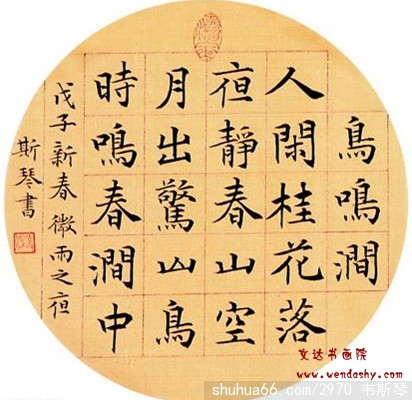 鳥鳴澗
人閑桂花落
夜靜春山空
月出驚山鳥
時鳴春澗中
戊子新春微雨之夜
斯琴書
文达书画院
www.wendashy.com
shuhua66.com/2970 韦斯琴